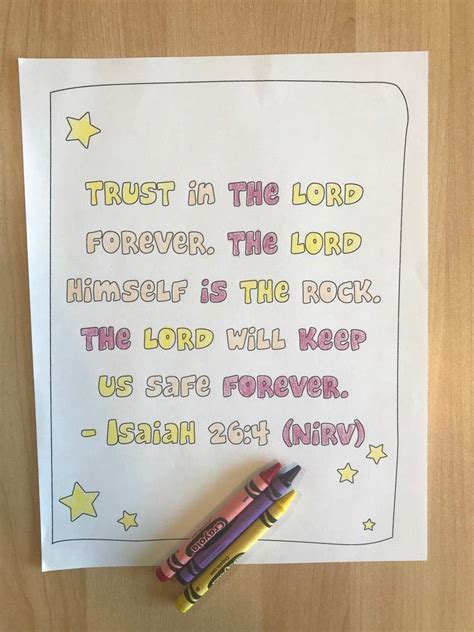 TRUST in THE LORD
FOREVER. THE LORD
HiMSELF iS THE ROCK.
THE LORD WiLL KEEP
US SAFE FOREVER.
- ISAIAH 26:4 (NiRV)
Crayola